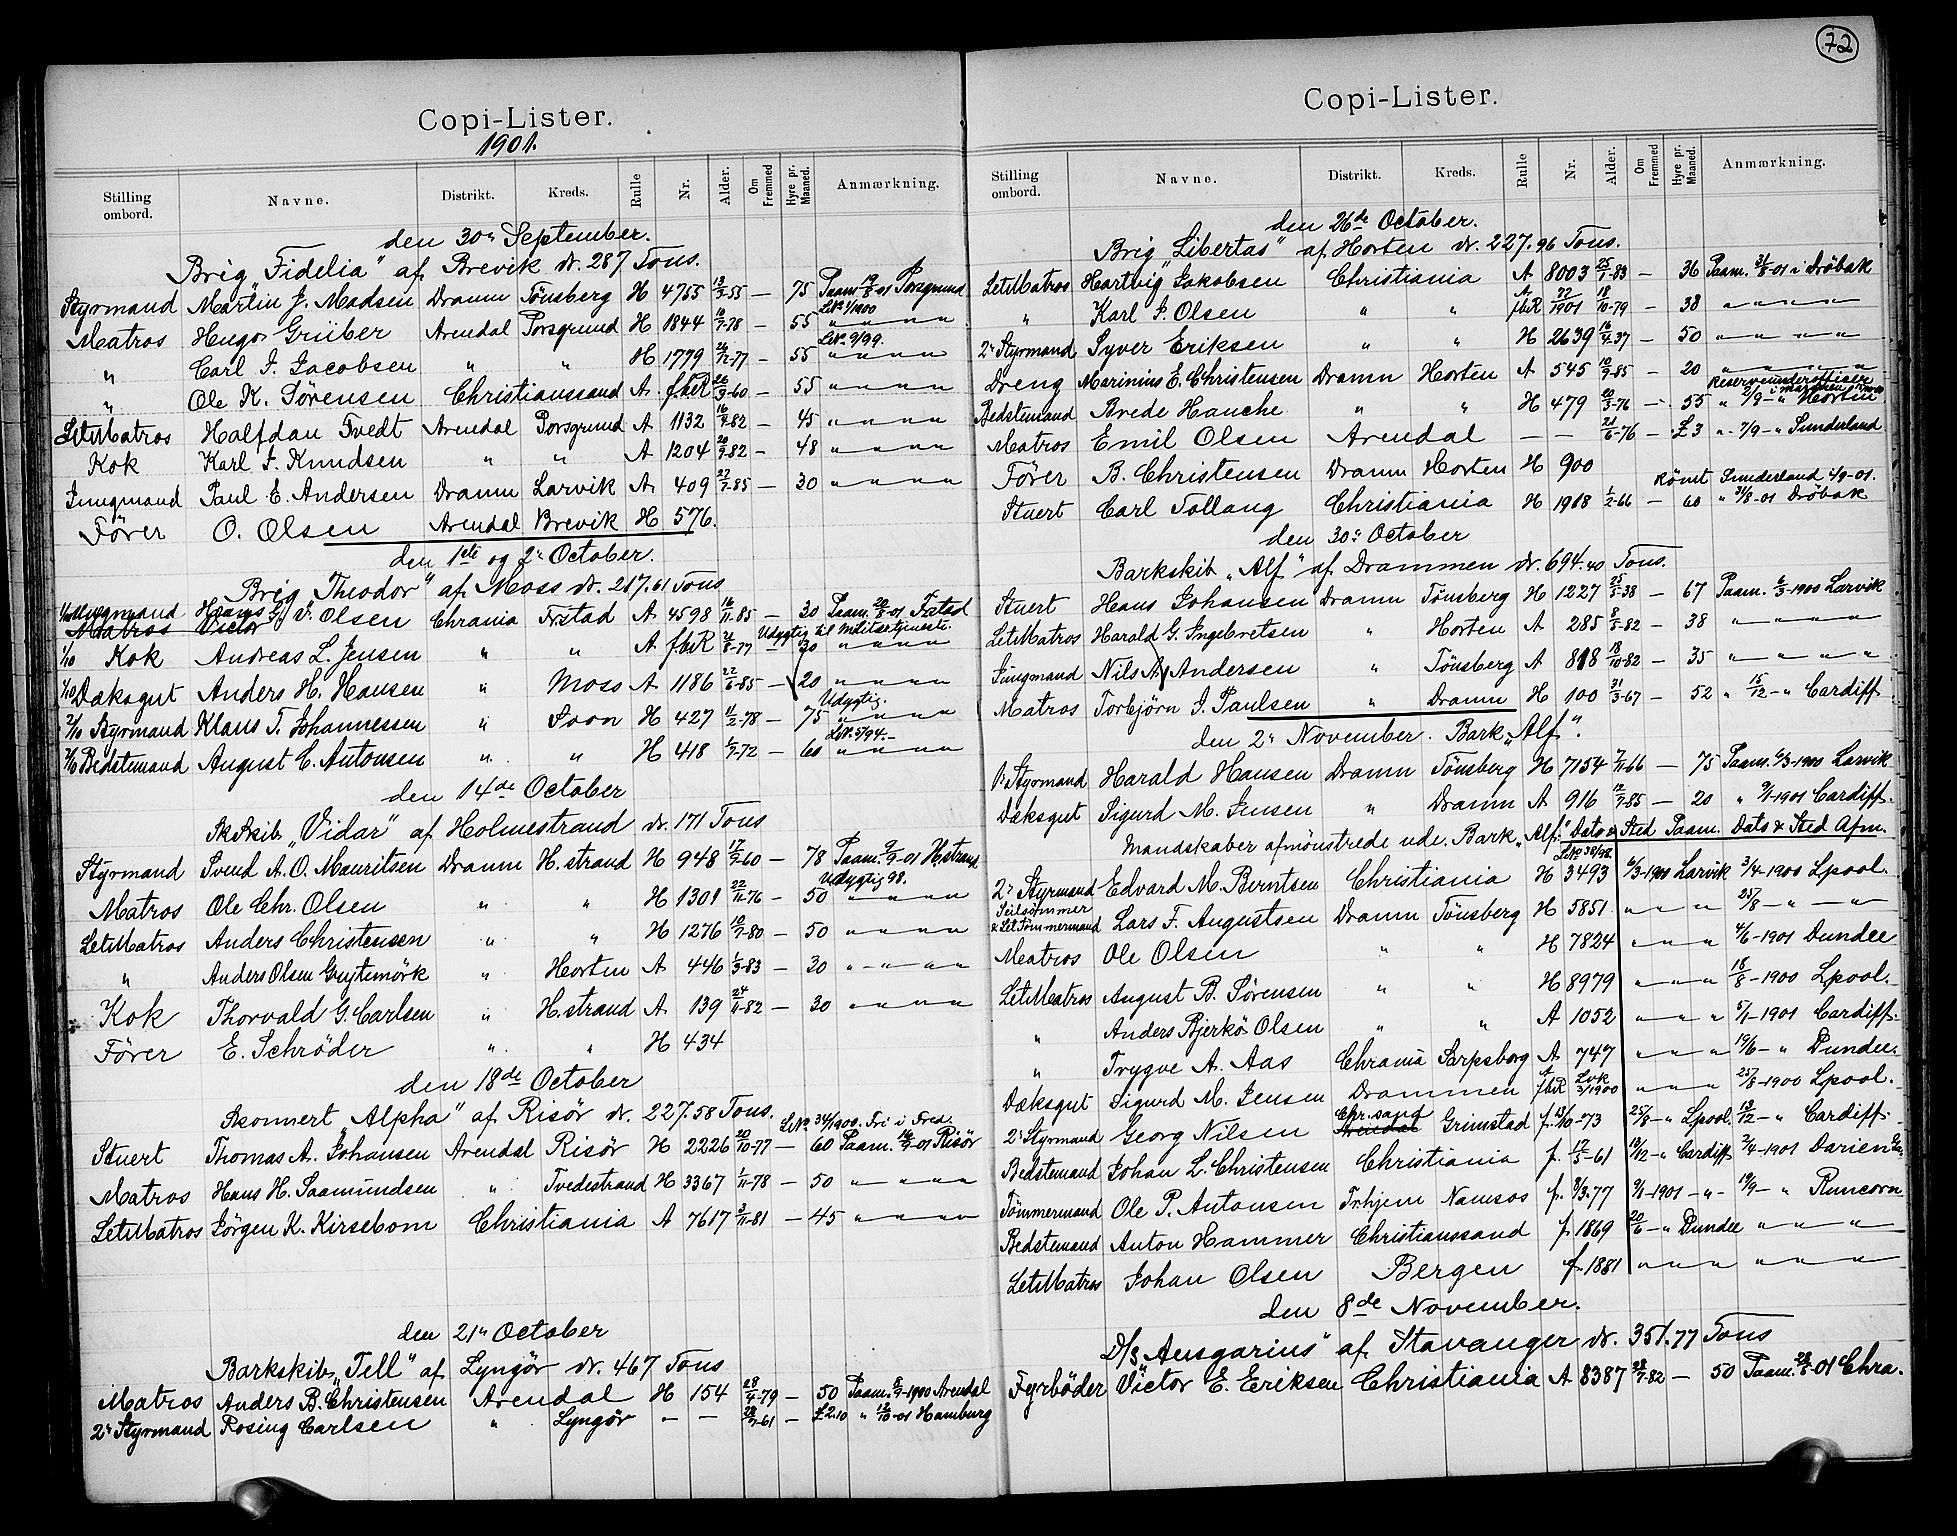 72
Copi-Lister.
1901.
Stilling ombord. Navne. Distrikt. Kreds. Rulle Nr. Alder. Om Fremmed Hyre pr. Maaned. Anmærkning.
den 30te September.
Brig "Fidelia" af Brevik dr. 287 Tons.
Styrmand Martin J. Madsen Dramn Tönsberg H 4755 13/3-55 — 75 Paam. 19/8-01 Porsgrund
Let No 1/1900
Matros Hugo Grüber Arendal Porsgrund H 1844 16/7-78 — 55 " " " "
LetN. 9/99.
" Carl J. Jacobsen " " H 1779 26/12-77 — 55 " " " "
" Ole K. Sörensen Christianssand A fbR 26/3-60 — 55 " " " "
LetMatros Halfdan Tvedt Arendal Porsgrund A 1132 16/9-82 — 45 " " " "
Kok Karl J. Knudsen " " A 1204 20/9-82 — 48 " " " "
Jungmand Paul E. Andersen Dramn Larvik A 409 27/7-85 — 30 " " " "
Förer O. Olsen Arendal Brevik H 576.
den 1ste og 2n October.
Brig "Theodor" af Moss dr. 217.61 Tons
Jungmand Hans G. V. Olsen Chrania Frstad A 4598 16/11-85 — 30 Paam. 20/8-01 Frstad
Matros Victor Udygtig til Militærtjeneste
1/10 Kok Andreas L. Jensen " " A fbR 4/8-77 30 " " " "
1/10 Dæksgut Anders H. Hansen " Moss A 1186 22/6-85 — 20 " " " "
Udygtig.
2/10 Styrmand Klaus T. Johannessen " Soon H 427 11/2-78 — 75 " " " "
LetN. 5/94.-
2/10 Bedstemand August C. Antonsen " " H 418 1/7-72 — 60 " " " "
den 14de October
Sk.Skib "Vidar" af Holmestrand dr. 171 Tons
Styrmand Svend A. O. Mauritsen Dramn H.strand H 948 17/9-60 — 78 Paam. 9/9-01 H.strand
Udygtig 98.
Matros Ole Chr. Olsen " " H 1301 22/11-76 — 50 " " " "
LetMatros Anders Christensen " " H 1276 10/7-80 — 50 " " " "
" Anders Olsen Grytemörk " Horten A 446 1/3-83 — 30 " " " "
Kok Thorvald G. Carlsen " H.strand A 139 24/11-82 — 30 " " " "
Förer E. Schröder " " H 434
den 18de October
Skonnert "Alpha" af Risör dr. 227.58 Tons.
LetNo. 34/1900. Fri i Fred.
Stuert Thomas A. Johansen Arendal Risör H 2226 20/10-77 — 60 Paam. 16/9-01 Risör
Matros Hans H. Saamundsen " Tvedestrand H 3367 1/11-78 — 50 " " " "
LetMatros Jörgen K. Kirsebom Christiania A 7617 3/11-81 — 45 " " " "
den 21n October
Barkskib "Tell" af Lyngör dr. 467 Tons
Matros Anders B. Christensen Arendal H 154 28/9-79 — 50 Paam. 5/7-1900 Arendal
2n Styrmand Rosing Carlsen " Lyngör — — 28/7-61 — £2.10 " 12/10-01 Hamburg
Copi-Lister.
Stilling ombord. Navne. Distrikt. Kreds. Rulle Nr. Alder. Om Fremmed Hyre pr. Maaned. Anmærkning.
den 26de October.
Brig "Libertas" af Horten dr. 227.96 Tons.
LetMatros Hartvig Jakobsen Christiania A 8003 25/1-83 — 36 Paam. 31/8-01 i Dröbak
" Karl J. Olsen " " A fbR 22/1901 18/10-79 — 38 " " " "
2n Styrmand Syver Eriksen " " H 2639 16/4-37 — 50 " " " "
Dreng Marinius E. Christensen Dramn Horten A 545 10/9-85 — 20 " " " "
Reserveunderofficer i marinen
Bedstemand Brede Hauche " " H 479 20/3-76 — 55 " 2/9-" Horten
Matros Emil Olsen Arendal — — 21/6-76 — £3 " 7/9-" Sunderland
Förer B. Christensen Dramn Horten H 900
Römt Sunderland 4/9-01.
Stuert Carl Tollang Christiania H 1918 1/2-66 — 60 " 31/8-01 Dröbak
den 30te October
Barkskib "Alf" af Drammen dr. 694.40 Tons.
Stuert Hans Johansen Dramn Tönsberg H 1227 25/5-38 — 67 Paam. 6/3-1900 Larvik
LetMatros Harald G. Ingebretsen " Horten A 285 8/5-82 — 38 " " " "
Jungmand Nils A. Andersen " Tönsberg A 818 18/10-82 — 35 " " " "
Matros Torbjörn J. Paulsen " Dramn H 100 31/3-67 — 52 " 15/12-" Cardiff
den 2n November. Bark "Alf".
1n Styrmand Harald Hansen Dramn Tönsberg H 7154 7/11-66 — 75 Paam. 6/3-1900 Larvik
Dæksgut Sigurd M. Jensen " Dramn A 916 12/7-85 — 20 " 9/1-1901 Cardiff.
Mandskaber afmönstrede ude. Bark "Alf." Dato & Sted Paam. Dato & Sted Afm.
LetNo 38/98.
2n Styrmand Edvard M. Berntsen Christiania H 3493 6/3-1900 Larvik 3/4-1900 Lpool.
Seilsömmer & LetTömmermand Lars F. Augustsen Dramn Tönsberg H 5851 " " " 25/8-" — "
Matros Ole Olsen " " H 7824 " " " 4/6-1901 Dundee
LetMatros August B. Sörensen " " H 8979 " " " 18/8-1900 Lpool.
" Anders Bjerkö Olsen " " A 1052 " " " 5/1-1901 Cardiff.
" Trygve A. Aas Chrania Sarpsborg A 747 " " " 19/6-" Dundee.
Dæksgut Sigurd M. Jensen Drammen A fbR Lvk 3/1900 " " " 25/8-1900 Lpool.
2n Styrmand Georg Nilsen Arendal Chr.sand Grimstad f. 13/10-73 25/8-" Lpool. 13/12-" Cardiff.
Bedstemand Johan L. Christensen Christiania f. 17/5-61 19/12-" Cardiff 2/4-1901 Darien
Tömmermand Ole P. Antonsen Tr.hjem Namsos f. 8/3-77 9/1-1901-"- 19/9-" Runcorn
Bedstemand Anton Hammer Christianssand f. 1869 20/6-" Dundee " " "
LetMatros Johan Olsen Bergen f. 1881 " " " " " "
den 8de November.
D/S "Ansgarius" af Stavanger dr. 351.77 Tons
Fyrböder Victor E. Eriksen Christiania A 8387 28/7-82 — 50 Paam. 28/8-01 Chra.